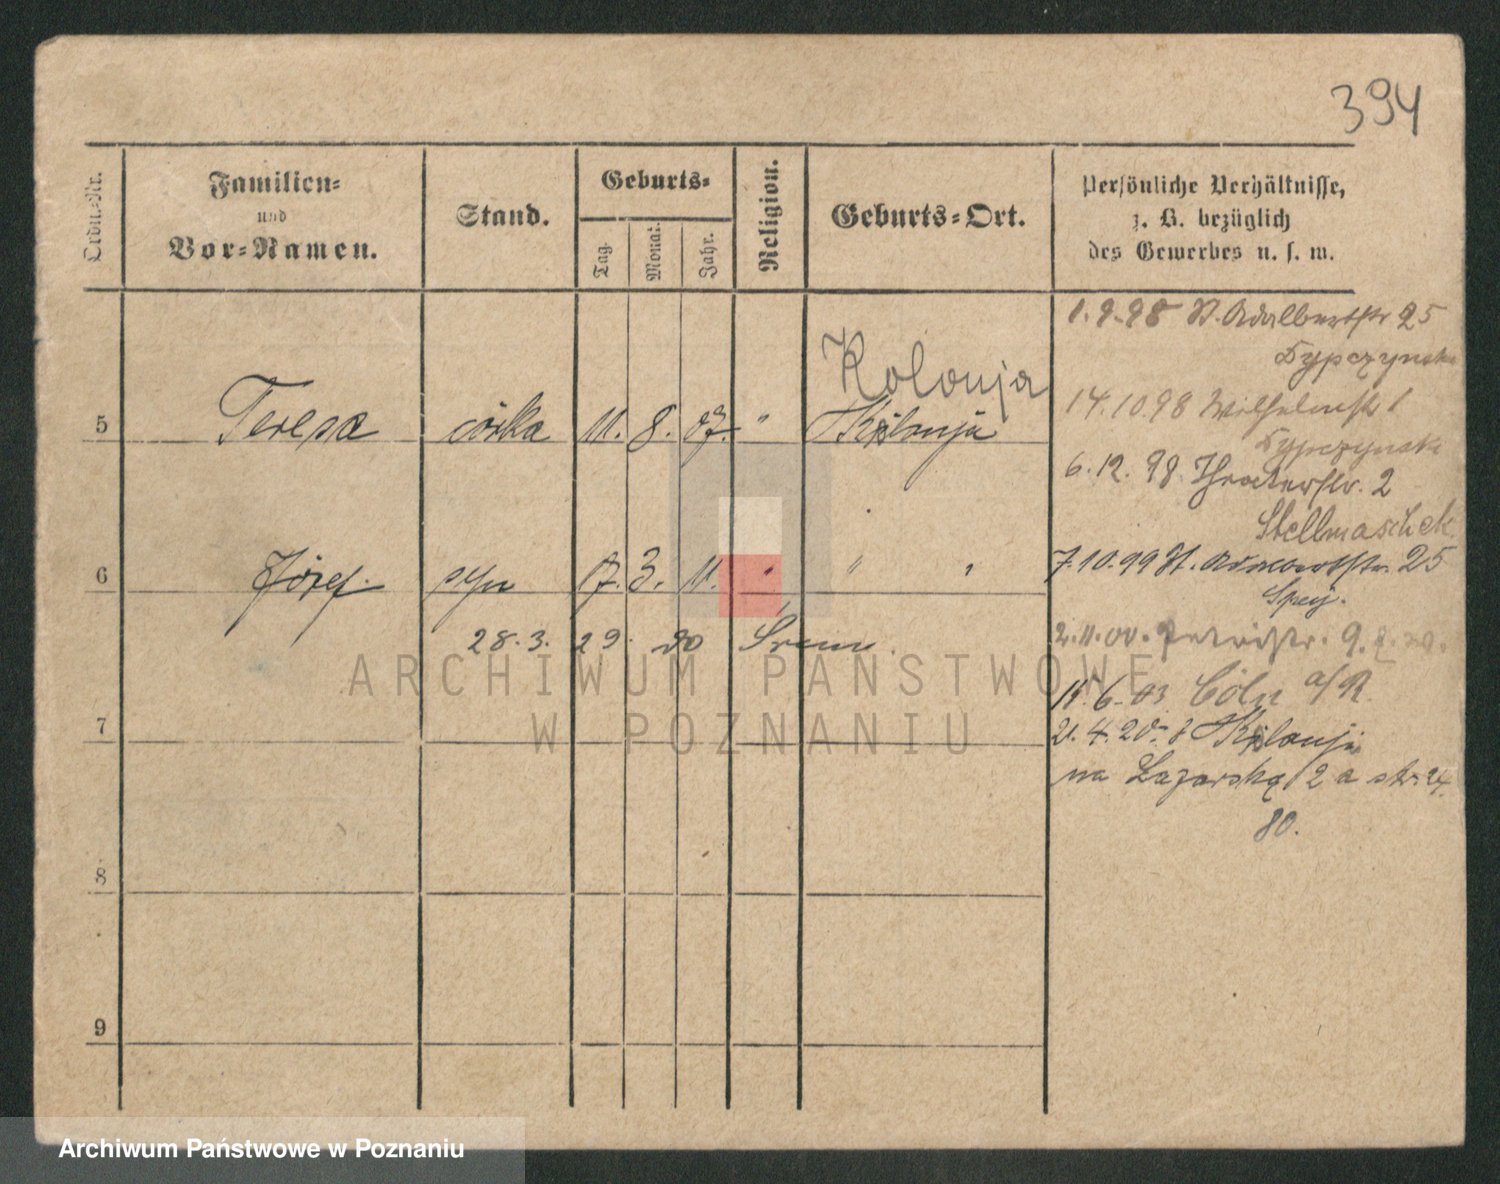 394
Ordn.-Nr.
Familien-
und
Vor-Namen.
Stand.
Geburts-
Tag.
Monat.
Jahr.
Religion.
Geburts-Ort.
Persönliche Verhältnisse,
z. B. bezüglich
des Gewerbes u. s. w.
1.9.98 St. Adalbertstr 25
Kolonja
14.10.98 Wilhelmstr 1
5 Teresa córka 11. 8. 07. " Kolonja
6.12.98. Theaterstr. 2
Stellmaschek
6 Józef syn 17. 3. 11. " " "
7.10.99 St. Adalbertstr. 25
28.3.29 do Śrem
2.11.00. Petristr. 9.
15.6.03 Cöln a/R.
7
21.4.20. Kolonja
na Łazarską 2 a str. 24.
80.
8
9
ARCHIWUM PAŃSTWOWE
W POZNANIU
Archiwum Państwowe w Poznaniu